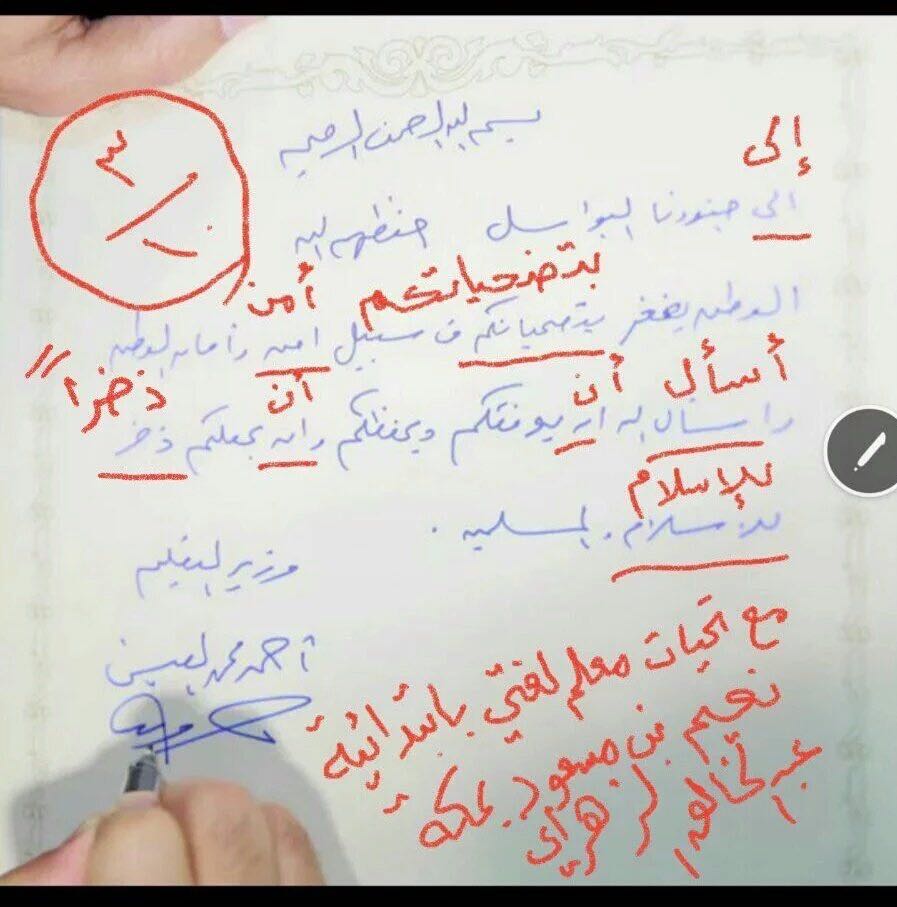 بسم الله الرحمن الرحيم
إلى
٣
١٠
الى جنودنا البواسل حفظهم الله
بتضحياتكم أمن
الوطن يفخر بتضحياتكم في سبيل امن وأمان الوطن
أسأل أن أن ذخرا"
واسأل الله ان يوفقكم ويحفظكم وان يجعلكم ذخر
للإسلام
للاسلام والمسلمين .
وزير التعليم
أحمد محمد العيسى
مع تحيات معلم لغتي بابتدائية
نعيم بن مسعود بمكة
عبدالخالق الزهراني